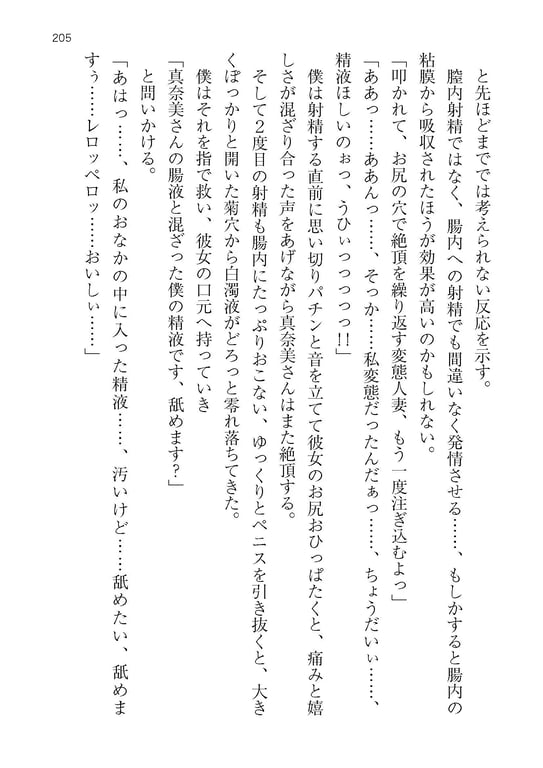 205
と先ほどまででは考えられない反応を示す。
膣内射精ではなく、腸内への射精でも間違いなく発情させる……、もしかすると腸内の
粘膜から吸収されたほうが効果が高いのかもしれない。
「叩かれて、お尻の穴で絶頂を繰り返す変態人妻、もう一度注ぎ込むよっ」
「ああっ……ああんっ……、そっか……私変態だったんだぁっ……、ちょうだいぃ……、
精液ほしいのぉっ、うひぃっっっっっ!!」
僕は射精する直前に思い切りパチンと音を立てて彼女のお尻おひっぱたくと、痛みと嬉
しさが混ざり合った声をあげながら真奈美さんはまた絶頂する。
そして２度目の射精も腸内にたっぷりおこない、ゆっくりとペニスを引き抜くと、大き
くぽっかりと開いた菊穴から白濁液がどろっと零れ落ちてきた。
僕はそれを指で救い、彼女の口元へ持っていき
「真奈美さんの腸液と混ざった僕の精液です、舐めます？」
と問いかける。
「あはっ……、私のおなかの中に入った精液……、汚いけど……舐めたい、舐めま
すぅ……レロッペロッ……おいしぃ……」